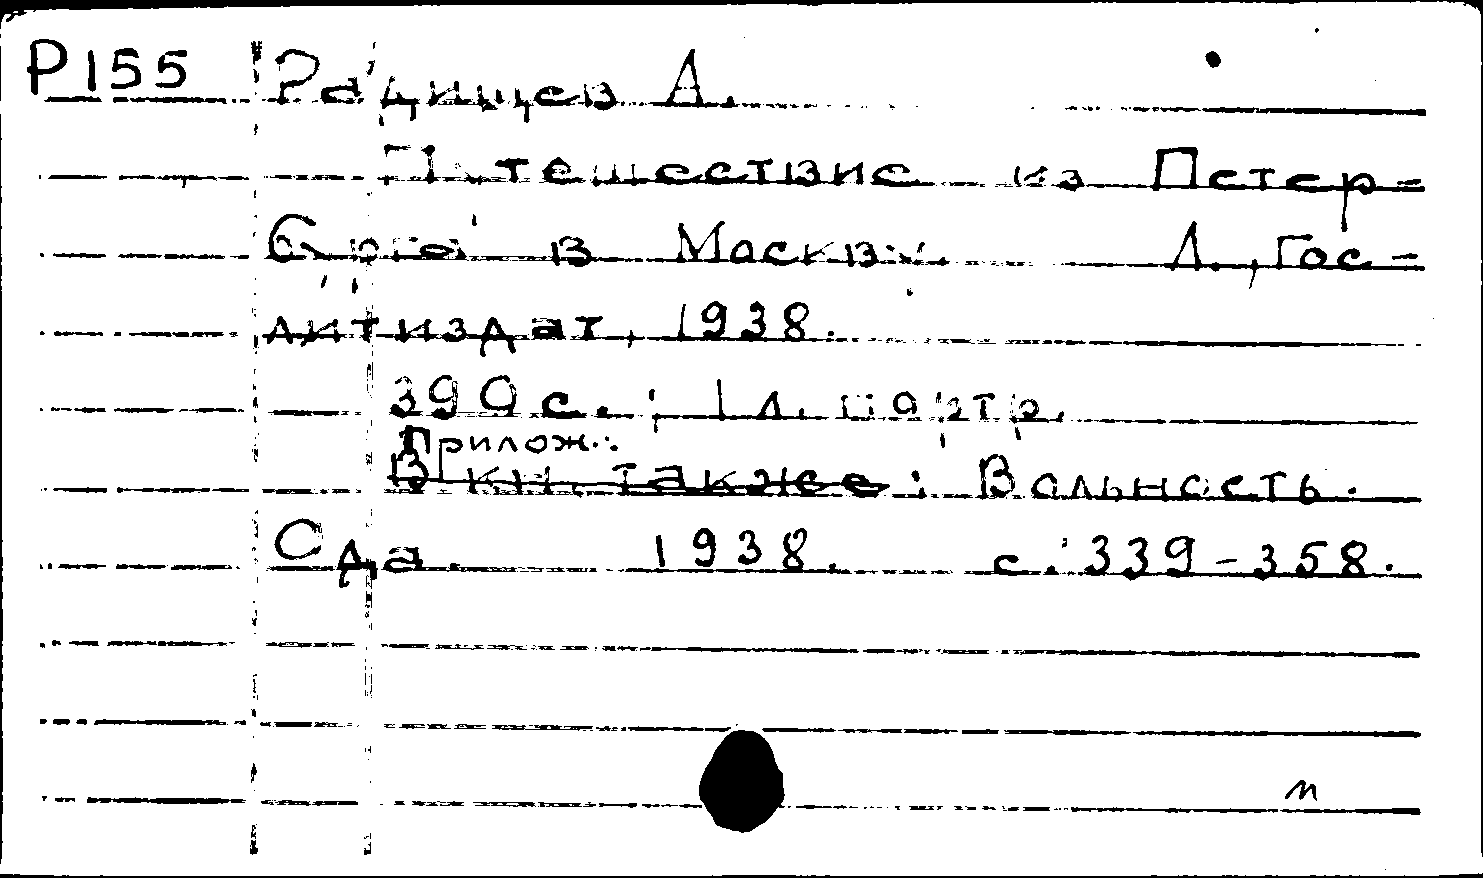 Р155 Радищев А.
Путешествие из Петер-
бурга в Москву. Л., Гос-
литиздат, 1938.
390 с.; 1 л. портр.
Прилож.:
В кн. также: Вольность.
Ода. 1938. с. 339-358.
п